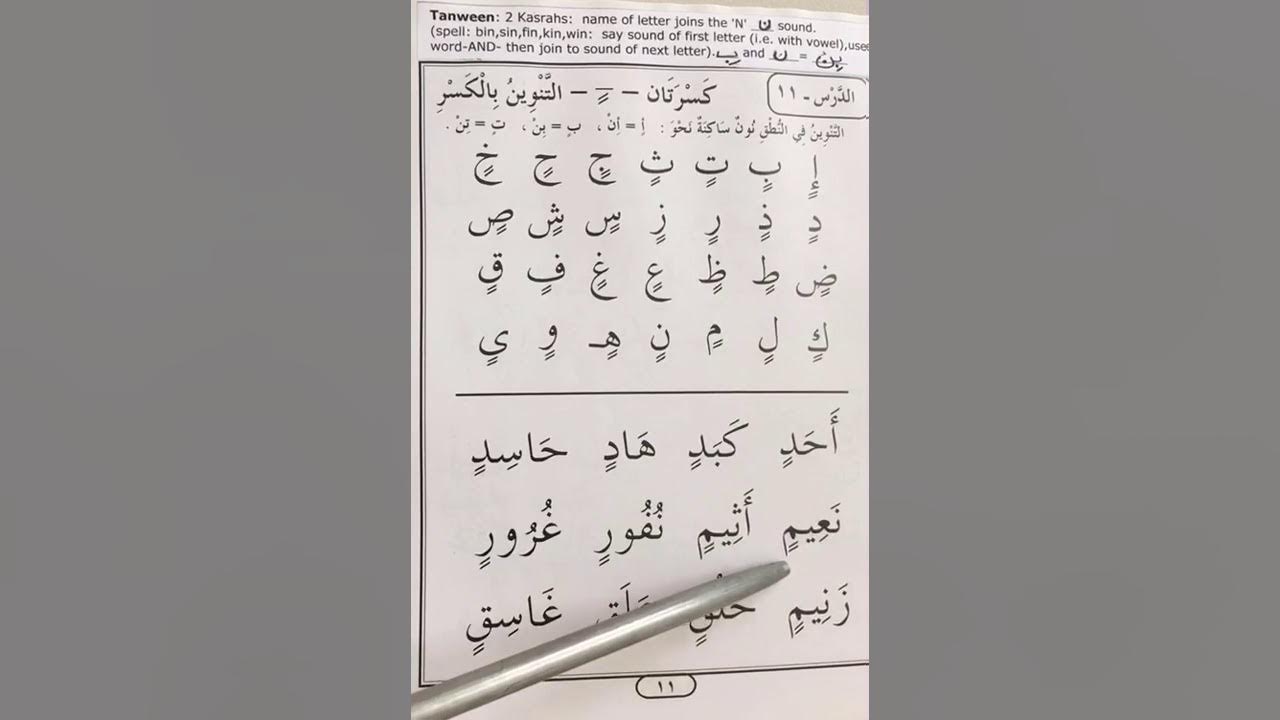 Tanween: 2 Kasrahs: name of letter joins the 'N' نْ sound.
(spell: bin,sin,fin,kin,win: say sound of first letter (i.e. with vowel),use
word-AND- then join to sound of next letter).بِ and نْ = بِنْ
الدَّرْس - ١١ كَسْرَتَان – ـٍ – التَّنْوِينُ بِالْكَسْرِ
التَّنْوِينُ فِي النُّطْقِ نُونٌ سَاكِنَةٌ نَحْوَ : إٍ = إِنْ ، بٍ = بِنْ ، تٍ = تِنْ .
إٍ بٍ تٍ ثٍ جٍ حٍ خٍ
دٍ ذٍ رٍ زٍ سٍ شٍ صٍ
ضٍ طٍ ظٍ عٍ غٍ فٍ قٍ
كٍ لٍ مٍ نٍ هٍـ وٍ يٍ
أَحَدٍ كَبَدٍ هَادٍ حَاسِدٍ
نَعِيمٍ أَثِيمٍ نُفُورٍ غُرُورٍ
زَنِيمٍ غَاسِقٍ
١١